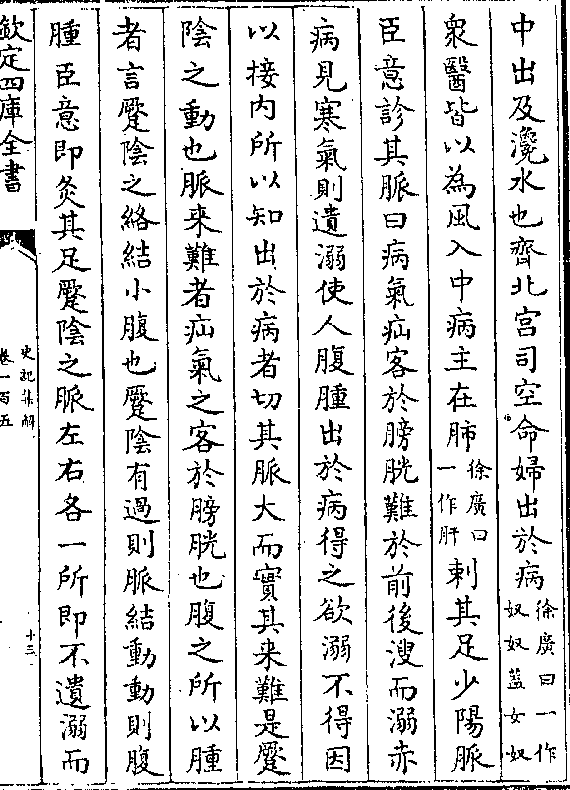 中出及灂水也齊北宮司空命婦出於病徐廣曰一作奴奴蓋女奴
衆醫皆以為風入中病主在肺徐廣曰一作肝刺其足少陽脈
臣意診其脈曰病氣疝客於膀胱難於前後溲而溺赤
病見寒氣則遺溺使人腹腫出於病得之欲溺不得因
以接内所以知出於病者切其脈大而實其来難是蹷
陰之動也脈来難者疝氣之客於膀胱也腹之所以腫
者言蹷陰之絡結小腹也蹷陰有過則脈結動動則腹
腫臣意即灸其足蹷陰之脈左右各一所即不遺溺而
欽定四庫全書
史記集解
卷一百五
十三